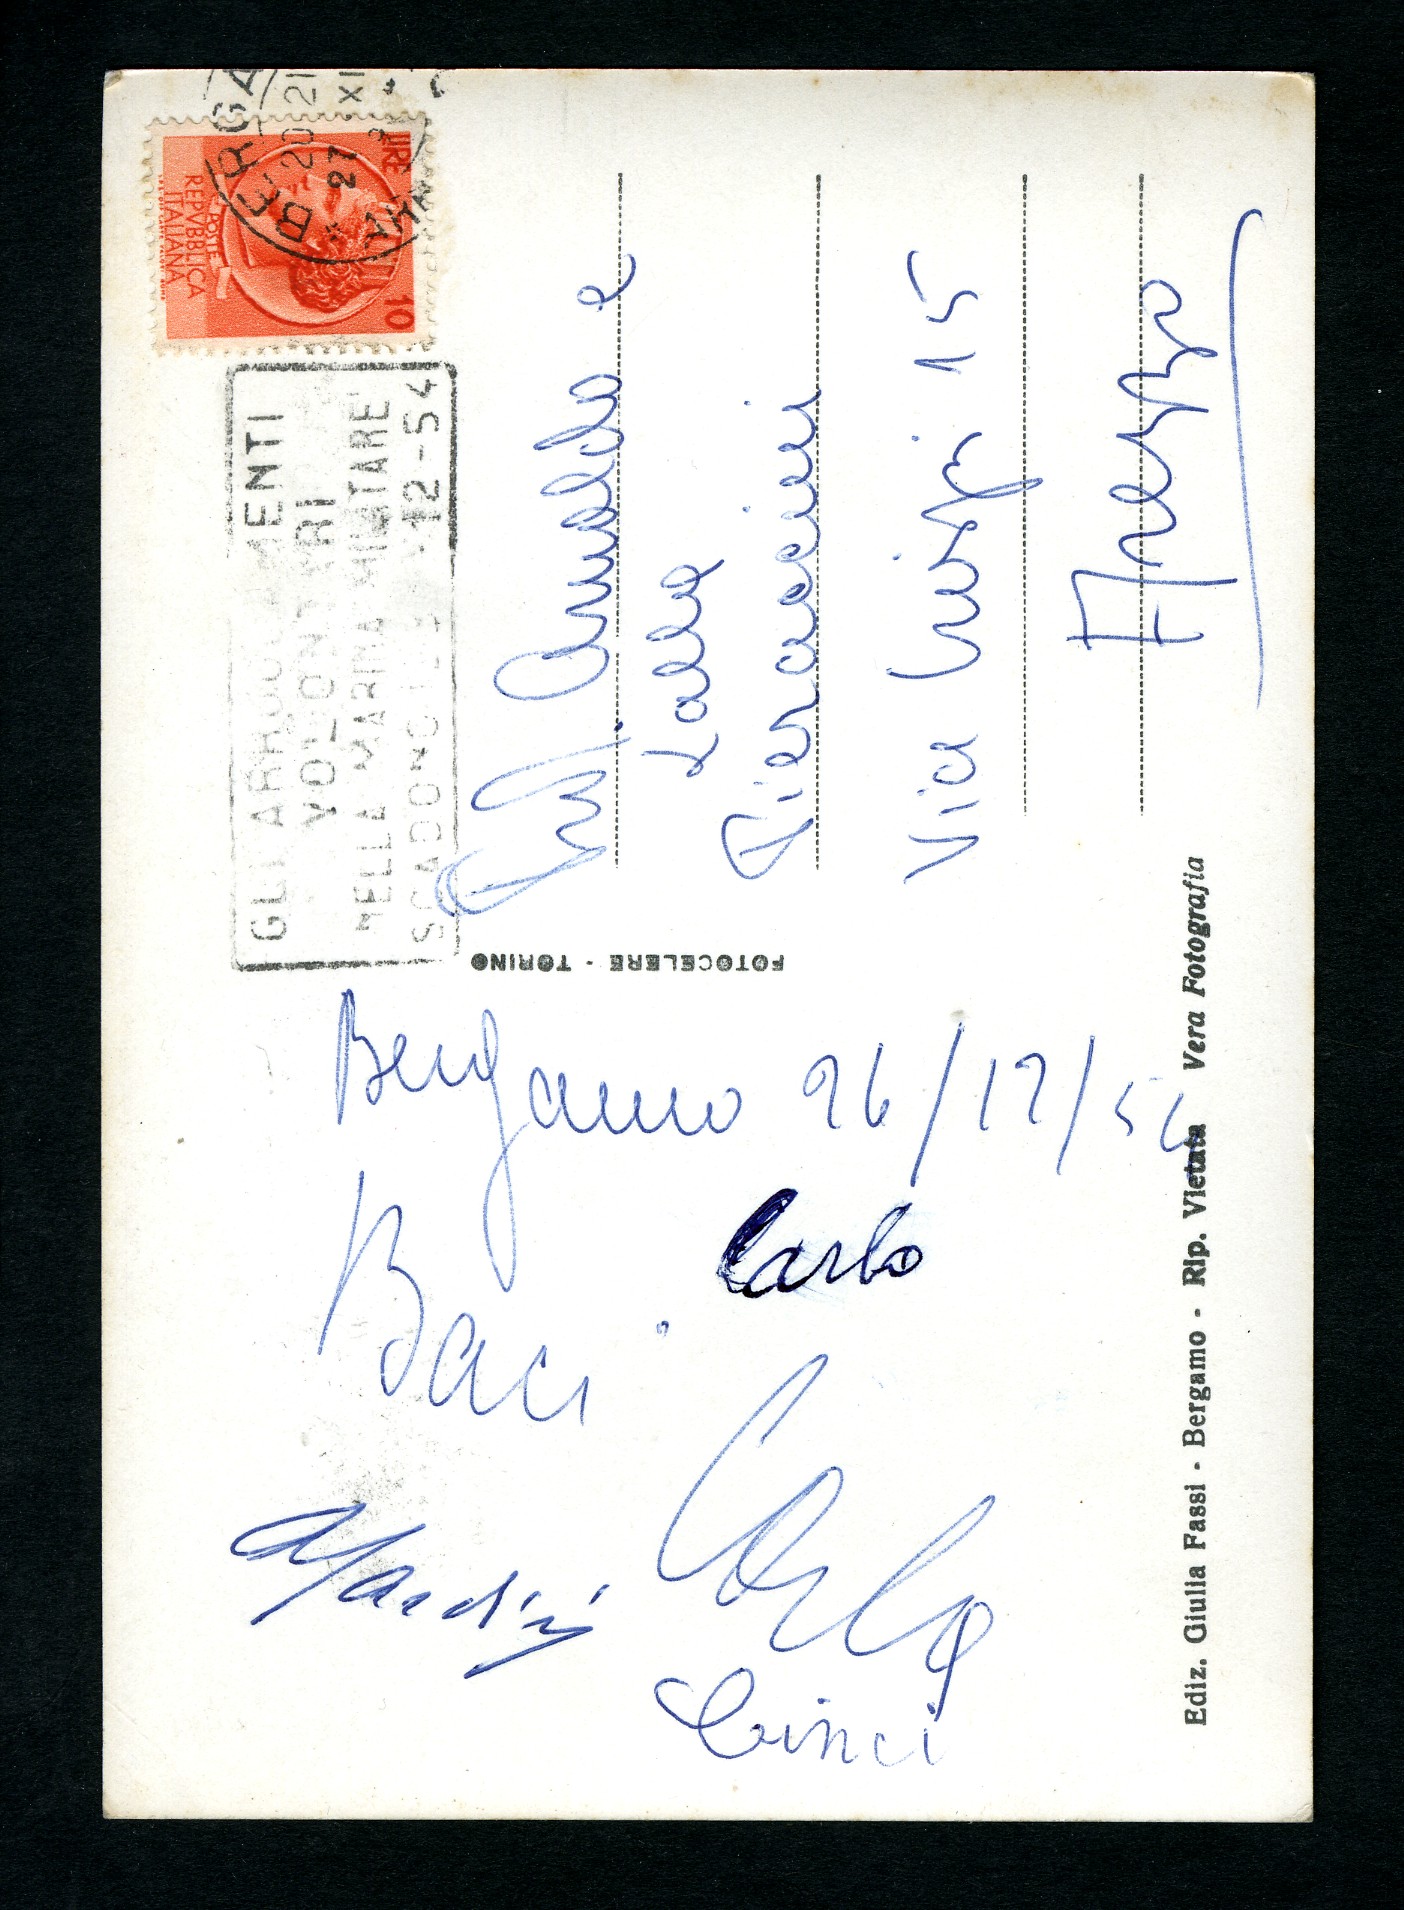 Bergamo 26/12/54
Baci
Carlo
Carlo
Cinci
Ediz. Giulia Fassi - Bergamo - Rip. Vietata Vera Fotografia
FOTOCELERE - TORINO
REPVBBLICA
ITALIANA
POSTE
LIRE 10
BERGA
20-21
27 XI
GLI ARRUOLAMENTI
VOLONTARI
NELLA MARINA MILITARE
SCADONO IL 12-54
Arnaldo e
Lalla
Pieraccini
Via Crispi 15
Arezzo